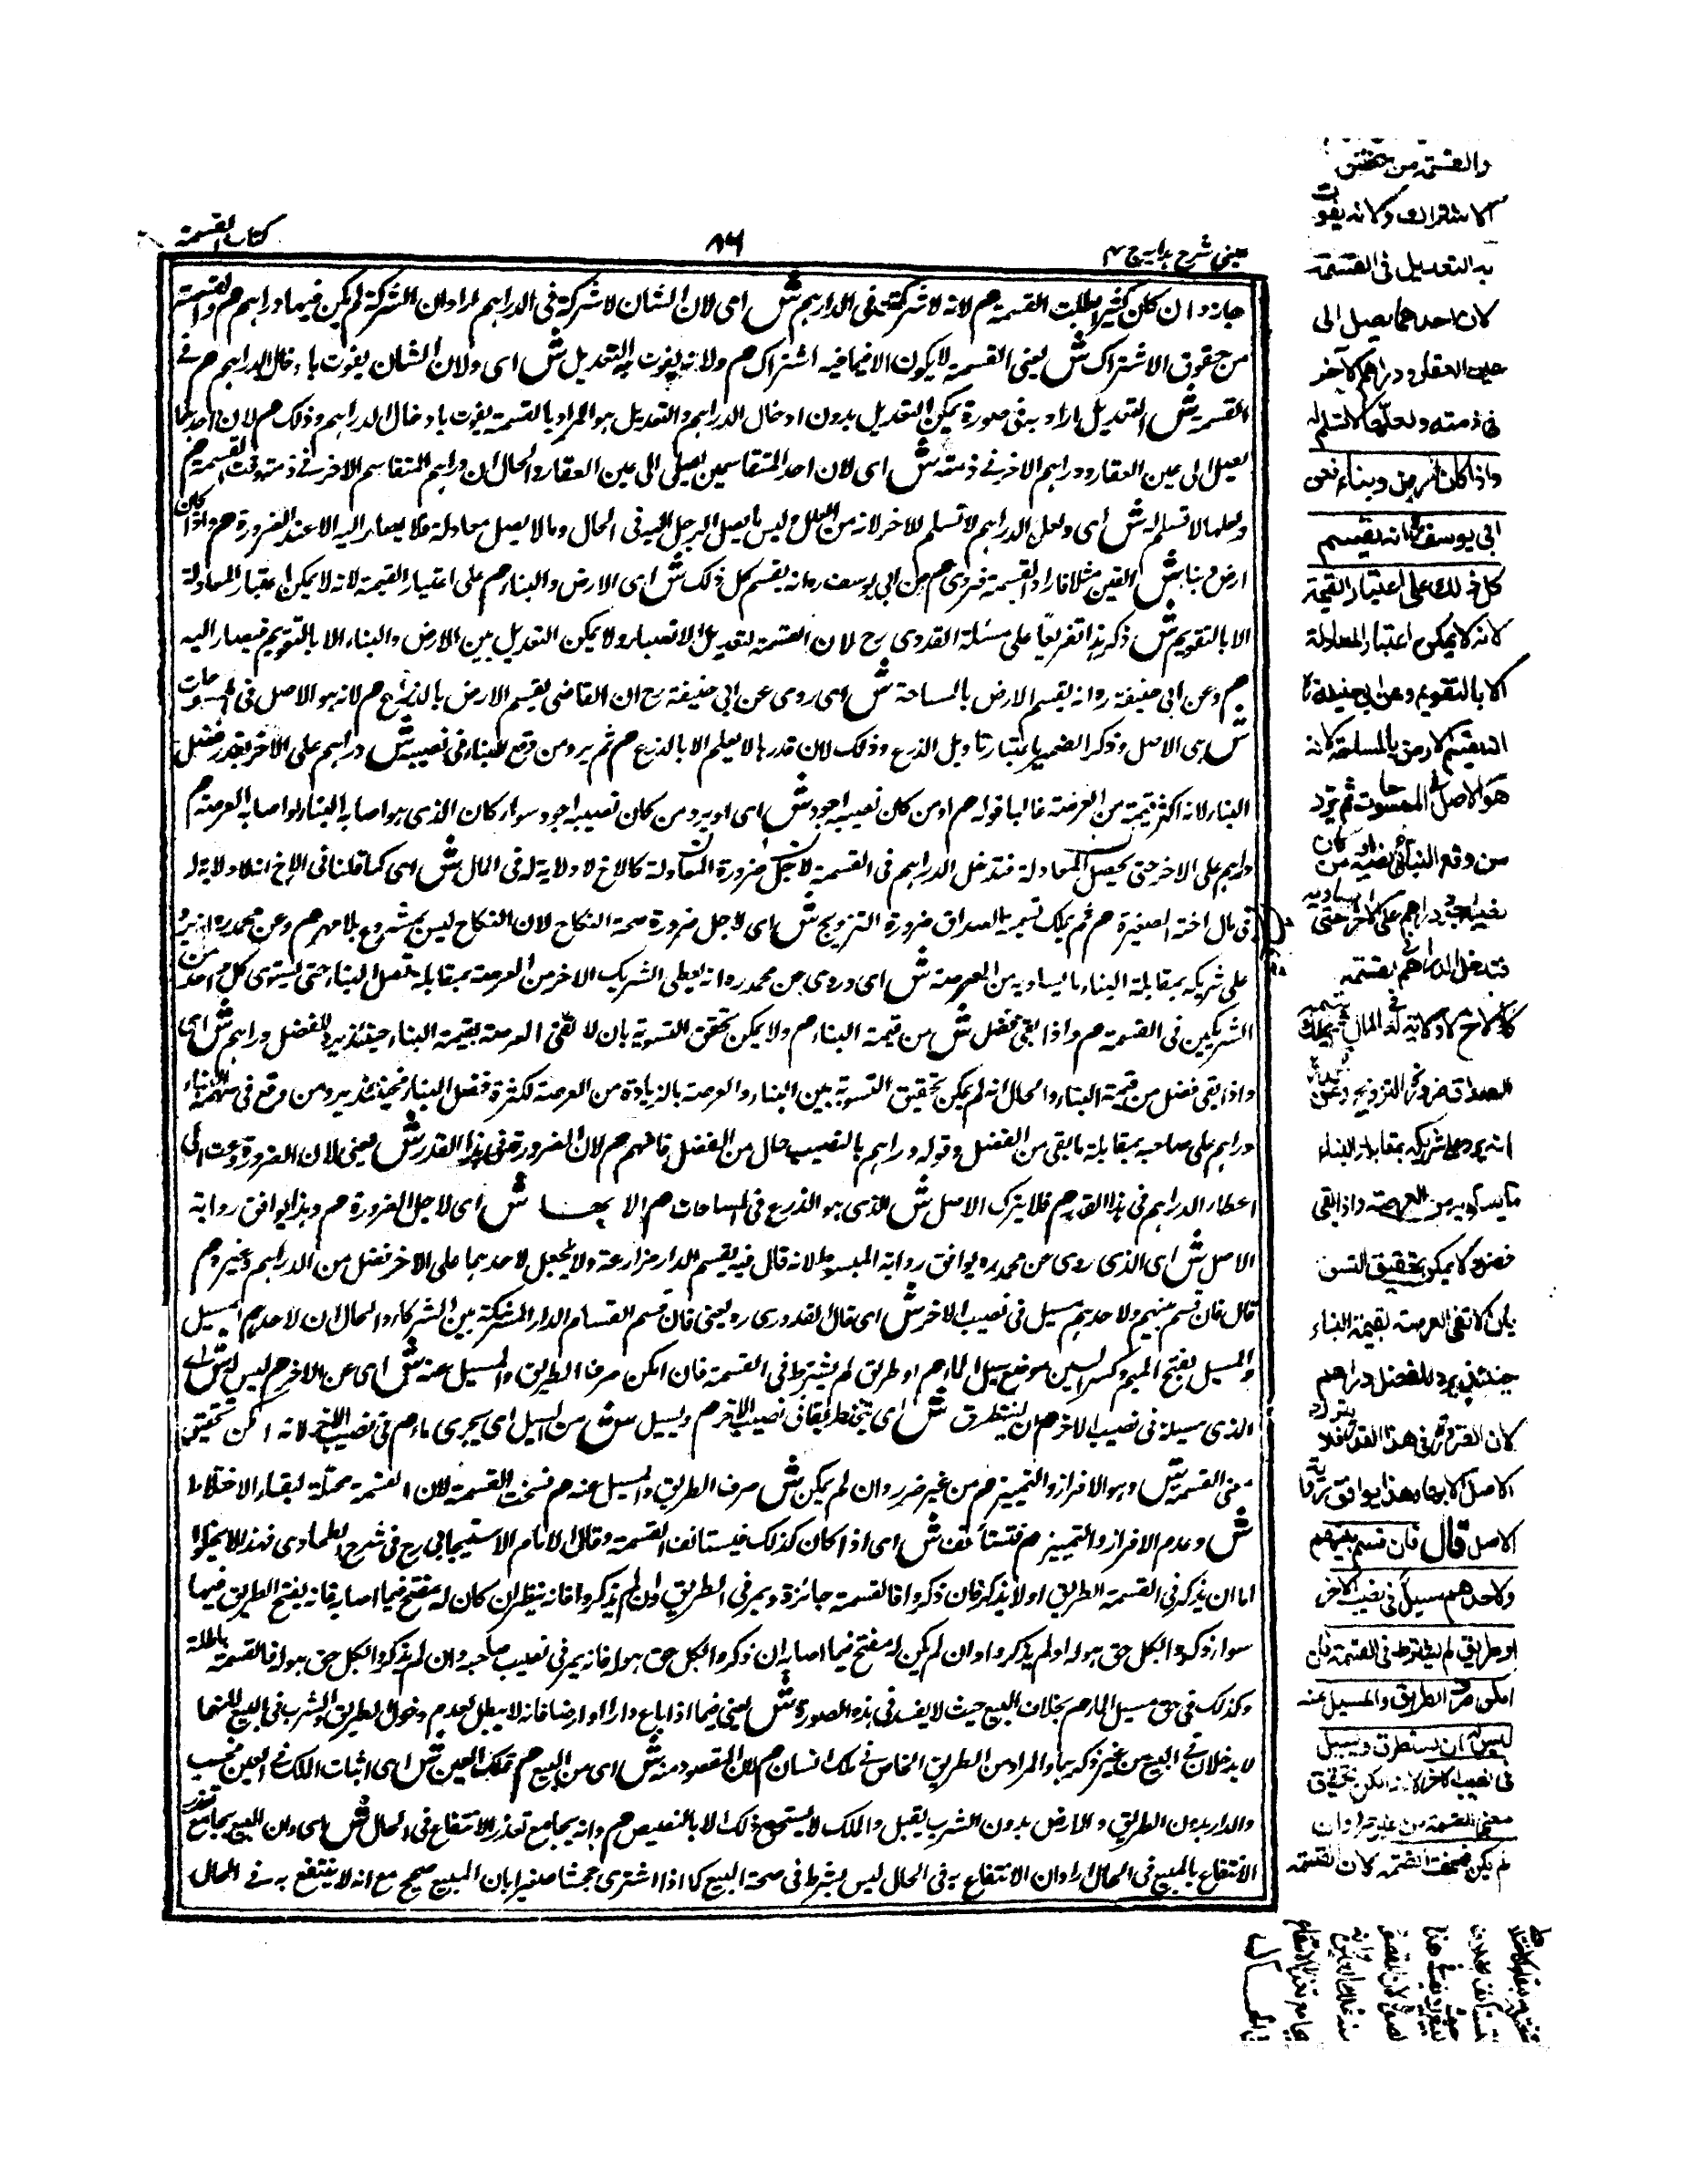 عينى شرح هدايہ ج ٣
٨٦
كتاب القسمة
جاز وان كان كثيرا بطلت القسمة هم لانه لا شركة فى الدراهم ش اى لان الشان لا شركة فى الدراهم المراد لان الشركة لم يكن فيها دراهم هم والقسمة
من حقوق الاشتراك ش يعنى القسمة لا يكون الا فيما فيه اشتراك هم ولانه يفوت به التعديل ش اى ولان الشان يفوت بادخال الدراهم هم فى
القسمة ش التعديل اراد به فى صورة يمكن التعديل بدون ادخال الدراهم والتعديل هو المراد بالقسمة يفوت بادخال الدراهم وذلك هم لان احدهما
يصل الى عين العقار ودراهم الاخر فى ذمته ش اى لان احد المتقاسمين يصل الى عين العقار والحال ان دراهم المتقاسم الاخر فى ذمته وقت القسمة هم
ولعلها لا تسلم له ش اى ولعل الدراهم لا تسلم للاخر لانه من ليس ما يصل الرجل اليه فى الحال وما لا يصل معادلة فلا يصار اليه الا عند الضرورة هم واذا كان
ارض وبناء ش القين مثلا فارادوا القسمة فروى هم عن ابى يوسف رہ انه يقسم كل ذلك ش اى الارض والبناء هم على اعتبار القيمة لانه لا يمكن اعتبار المعادلة
الا بالتقويم ش ذكر هذا تفريعا على مسئلة القدورى رح لان القسمة لتعديل الانصباء ولا يمكن التعديل بين الارض والبناء الا بالتقويم فيصار اليه
هم وعن ابى حنيفة رہ انه يقسم الارض بالمساحة ش اى روى عن ابى حنيفة رح ان القاضى يقسم الارض بالذراع هم لانه هو الاصل فى الممسوحات
ش اى الاصل وذكر الضمير باعتبار تاويل الذرع وذلك لان قدرها لا يعلم الا بالذرع هم ثم يرد من وقع البناء فى نصيبه ش دراهم على الاخر بقدر فضل
البناء لانه اكثر قيمة من العرصة غالبا قوله هم او من كان نصيبه اجود ش اى او يرد من كان نصيبه اجود سواء كان الذى هو اصابه البناء او اصابه العرصة هم
دراهم على الاخر حتى يحصل المعادلة فتدخل الدراهم فى القسمة لاجل ضرورة المعادلة كالاخ لا ولاية له فى المال ش اى كما قلنا فى الاخ انه لا ولاية له
فى مال اخته الصغيرة هم ثم يملك تسمية الصداق ضرورة التزويج ش اى لاجل ضرورة صحة النكاح لان النكاح ليس بمشروع بلا مهر هم وعن محمد رہ انه يرد
على شريكه بمقابلة البناء ما يساويه من العرصة ش اى وروى عن محمد رہ انه يعطى الشريك الاخر من العرصة بمقابلة فضل البناء حتى يستوى كل واحد من
الشريكين فى القسمة هم واذا بقى فضل ش من قيمة البناء هم ولا يمكن تحقق التسوية بان لا تفى العرصة بقيمة البناء حينئذ يرد للفضل دراهم ش اى
واذا بقى فضل من قيمة البناء والحال انه لم يكن تحقيق التسوية بين البناء والعرصة بالزيادة من العرصة لكثرة فضل البناء فحينئذ يرد من وقع فى سهمه البناء
دراهم على صاحبه بمقابلة ما بقى من الفضل وقوله دراهم بالنصب حال من الفضل فافهم هم لان الضرورة فى هذا القدر ش يعنى لان الضرورة دعت الى
اعطاء الدراهم فى هذا القدر هم فلا يترك الاصل ش الذى هو الذرع فى المساحات هم الا بها ش اى لاجل الضرورة هم وهذا يوافق رواية
الاصل ش اى الذى روى عن محمد رہ يوافق رواية المبسوط لانه قال فيه يقسم الدار مزارعة ولا يجعل لاحدهما على الاخر فضل من الدراهم وغيره هم
قال فان قسم بينهم ولاحدهم مسيل فى نصيب الاخر ش اى قال القدورى رہ يعنى فان قسم القسام الدار المشتركة بين الشركاء والحال ان لاحدهم المسيل
والمسيل بفتح الميم وكسر السين موضع سيل الماء هم او طريق لم يشترط فى القسمة فان امكن صرف الطريق والمسيل عنه ش اى عن الاخر هم ليس له ش اى
الذى مسيله فى نصيب الاخر هم ان يستطرق ش اى يتخذ طريقا فى نصيب الاخر هم ويسيل ش من اسيل اى يجرى ماء هم فى نصيب الاخر لانه امكن تحقيق
معنى القسمة ش وهو الافراز والتمييز هم من غير ضرر وان لم يمكن ش صرف الطريق والمسيل عنه هم فسخت القسمة لان القسمة مختلة لبقاء الاختلاط
ش وعدم الافراز والتمييز هم فتستأنف ش اى اذا كان كذلك فيستانف القسمة وقال الامام الاسبيجابى رح فى شرح الطحاوى فهذا لا يخلوا
اما ان يذكر فى القسمة الطريق او لا يذكر فان ذكروا فالقسمة جائزة ويمر فى الطريق وان لم يذكروا فانه ينظر ان كان له مفتح فيما اصابه فانه يفتح الطريق فيها
سواء ذكروا لكل حق هو له او لم يذكروا وان لم يكن له مفتح فيما اصابه ان ذكروا لكل حق هو له فانه يمر فى نصيب صاحبه وان لم يذكروا لكل حق هو له فالقسمة باطلة
وكذلك فى حق مسيل الماء هم بخلاف البيع حيث لا يفسد فى هذه الصورة ش يعنى فيما اذا باع دارا او ارضا فانه لا يبطل لعدم دخول الطريق والشرب فى البيع لانهما
لا يدخلان فى البيع من غير ذكرهما والمراد من الطريق الخاص فى ملك انسان هم لان المقصود منه ش اى من البيع هم تملك العين ش اى اثبات الملك فى العين فحسب
والدار بدون الطريق والارض بدون الشرب يقبل والملك لا يستحق ذلك الا بالتنصيص هم وانه يجامع تعذر الانتفاع فى الحال ش اى وان البيع يجامع تعذر
الانتفاع بالمبيع فى الحال اراد ان الانتفاع به فى الحال ليس بشرط فى صحة البيع كما اذا اشترى جحشا صغيرا بان المبيع صحيح مع انه لا ينتفع به فى الحال
والقسمة من حقوق
الاشتراك ولانه يفوت
به التعديل فى القسمة
لان احدهما يصل الى
عين العقار ودراهم الآخر
فى ذمته ولعلها لا تسلم له
واذا كان ارض وبناء فعن
ابى يوسف انه يقسم
كل ذلك على اعتبار القيمة
لانه لا يمكن اعتبار المعادلة
الا بالتقويم وعن ابى حنيفة
انه يقسم الارض بالمساحة لانه
هو الاصل فى الممسوحات ثم يرد
من وقع البناء فى نصيبه او من كان
نصيبه اجود دراهم على الآخر حتى يساويه
فتدخل الدراهم فى القسمة
كالاخ لا ولاية له فى المال ثم يملك تسمية
الصداق ضرورة التزويج وعن محمد
انه يرد على شريكه بمقابلة البناء
ما يساويه من العرصة واذا بقى
فضل ولا يمكن تحقيق التسوية
بان لا تفى العرصة بقيمة البناء
حينئذ يرد للفضل دراهم
لان الضرورة فى هذا القدر فلا يترك
الاصل الا بها وهذا يوافق رواية
الاصل قال فان قسم بينهم
ولاحدهم مسيل فى نصيب الآخر
او طريق لم يشترط فى القسمة فان
امكن صرف الطريق والمسيل عنه
ليس له ان يستطرق ويسيل
فى نصيب الآخر لانه امكن تحقيق
معنى القسمة من غير ضرر وان
لم يكن فسخت القسمة لان القسمة